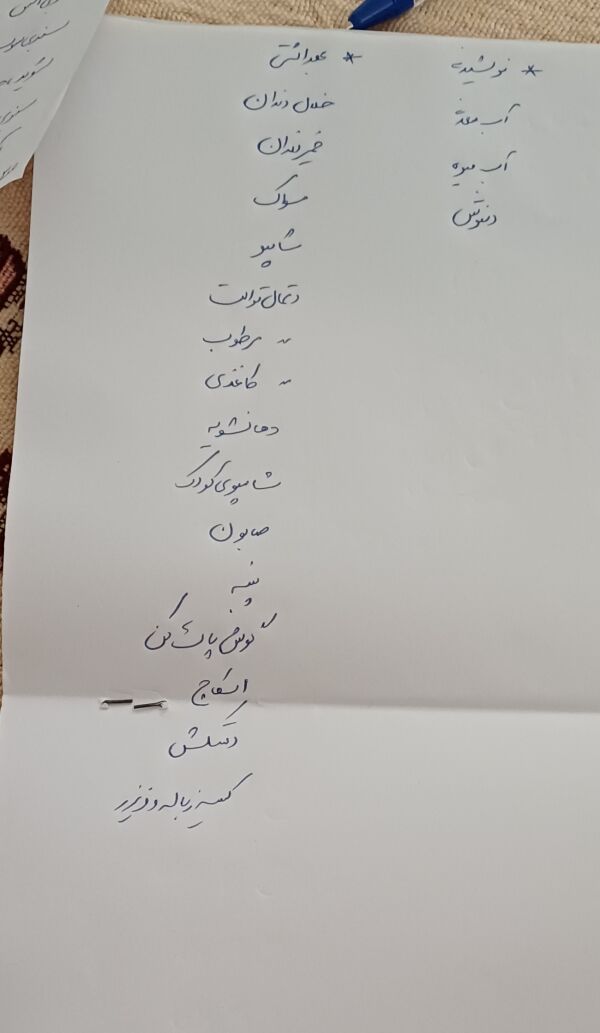 * نوشیدنی
آب معدنی
آب میوه
دمنوش
* بهداشتی
خلال دندان
خمیردندان
مسواک
شامپو
دستمال توالت
〃 مرطوب
〃 کاغذی
دهانشویه
شامپوی کودک
صابون
پنبه
گوش پاک کن
اسکاچ
دستکش
کیسه زباله و فریزر